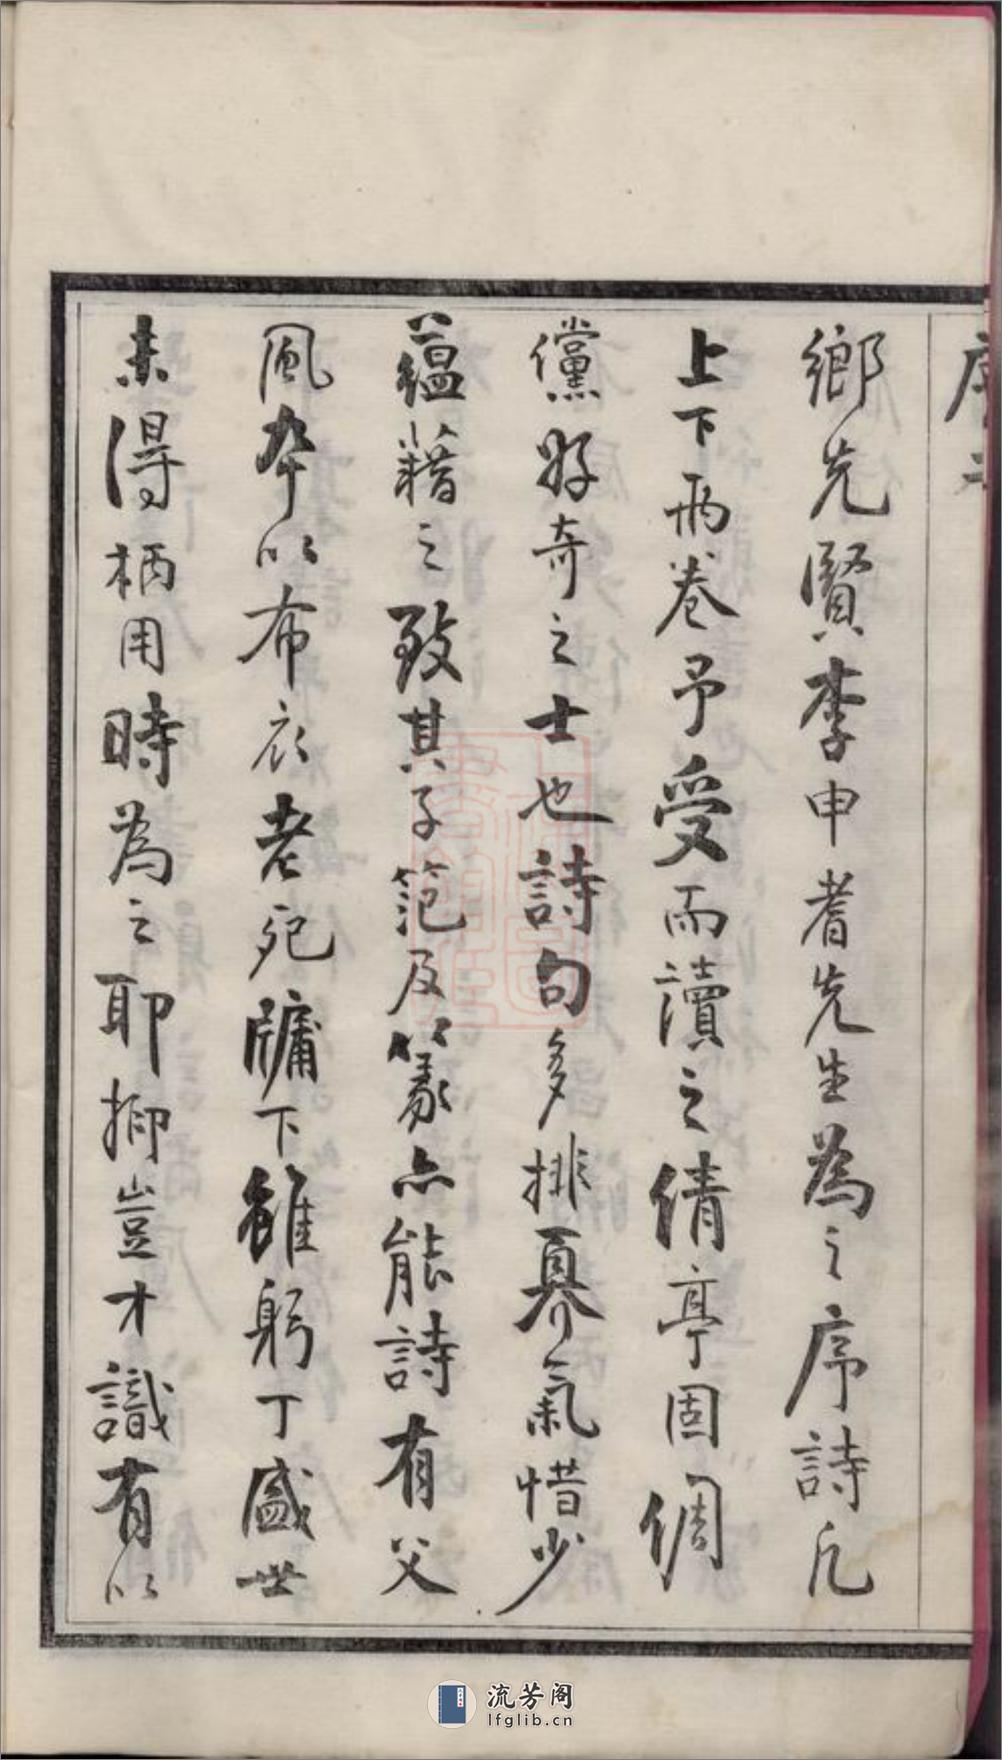 鄉先賢李申耆先生為之序詩凡
上下兩卷予受而讀之倩亭固倜
儻好奇之士也詩句多排奡氣惜少
蘊藉之致其子范及篆亦能詩有父
風卒以布衣老死牖下雖躬丁盛世
未得柄用時為之耶抑豈才識有以
流芳阁
lfglib.cn